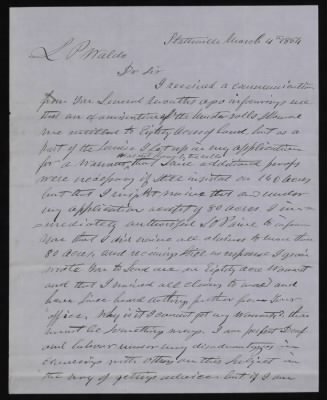 March 4th 1854
L P Waldo
Dr Sir
I received a communication
from you several months ago informing me
that an examination of the muster rolls showed
me entitled to Eighty acres of land but as a
part of the service I set up in my application
for a Warrant, that additional proofs
were necessary if I still insisted on 160 acres
but that I might receive that under
my application entitled 80 acres. I im-
mediately authorised to inform
you that I did waive all claims to more than
80 acres, and receiving no response I again
wrote you to send me an Eighty acre Warrant
and that I waived all claims to and
have since heard nothing further from your
office. Why is it I cannot get my warrant? there
must be something wrong. I am perfect Deaf
and labour under many disadvantages in
conversing with others on this subject in
the way of getting advice. but if I am